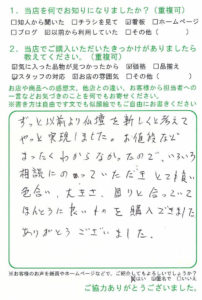 1. 当店を何でお知りになりましたか?(重複可)
□知人から聞いた □チラシを見て ☑看板 □ホームページ
□ブログ ☑以前から利用していた □その他( )
2. 当店でご購入いただいたきっかけがありましたら
教えてください。(重複可)
☑気に入った品物が見つかったから ☑価格 □品揃え
☑スタッフの対応 □お店の雰囲気 □その他( )
お店や商品への感想文、他店との違い、お客様から担当者への
一言などお気づきのことを何でもお寄せください。
※書き方は自由です文でも似顔絵でもご自由にお書きください
ずっと以前より仏壇を新しくと考えて
やっと実現しました。お値段など
まったくわからなかったので、いろいろ
相談にのっていただき とても良い
色合い、大きさ、周りと合っていて
ほんとうに良いものを購入できました
ありがとうございました。
※お客様のお声を雑誌やホームページなどで、ご紹介してもよろしいでしょうか?
ご協力ありがとうございました。